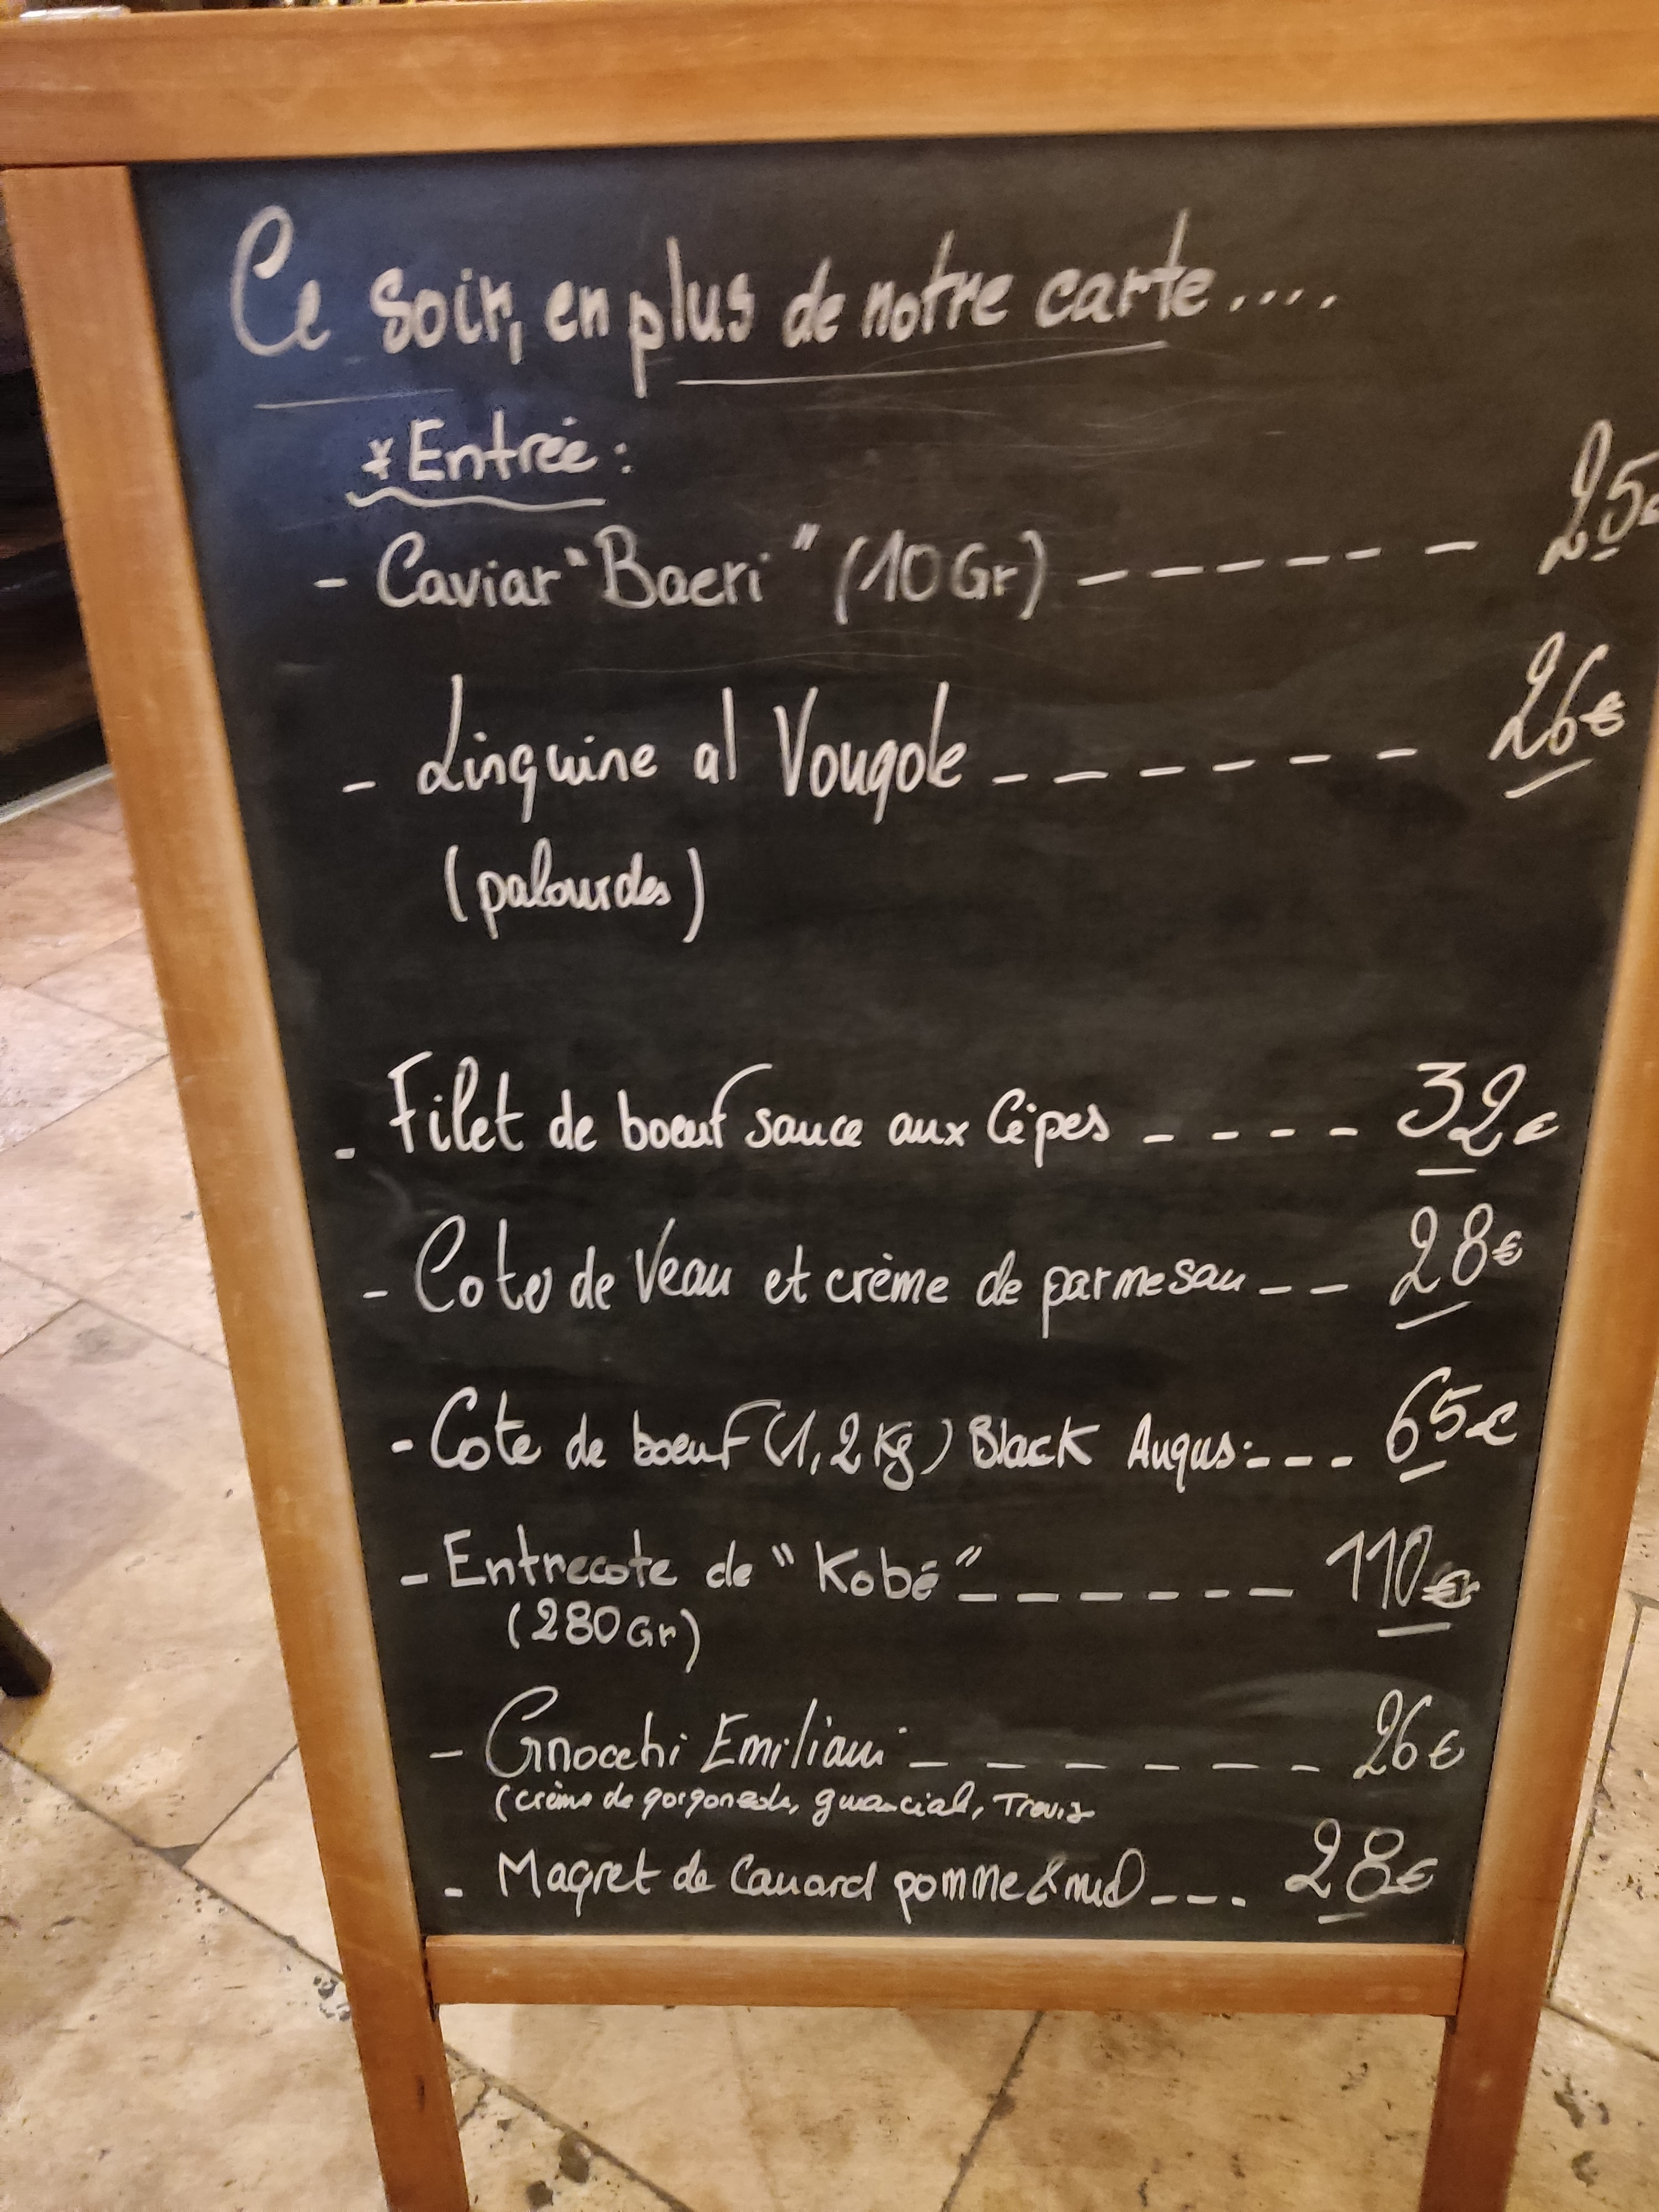 Ce soir, en plus de notre carte....
* Entrée :
- Caviar "Baeri" (10Gr) ------ 25€
- Linguine al Vougole ------ 26€
(palourdes)
- Filet de bœuf sauce aux Cèpes ---- 32€
- Cote de Veau et crème de parmesan -- 28€
- Cote de boeuf (1,2 Kg) Black Angus --- 65€
- Entrecote de "Kobé" ------ 110€
(280Gr)
- Gnocchi Emiliani ------ 26€
(crème de gorgonzola, guancial, Trevis
- Magret de Canard pomme & miel --- 28€